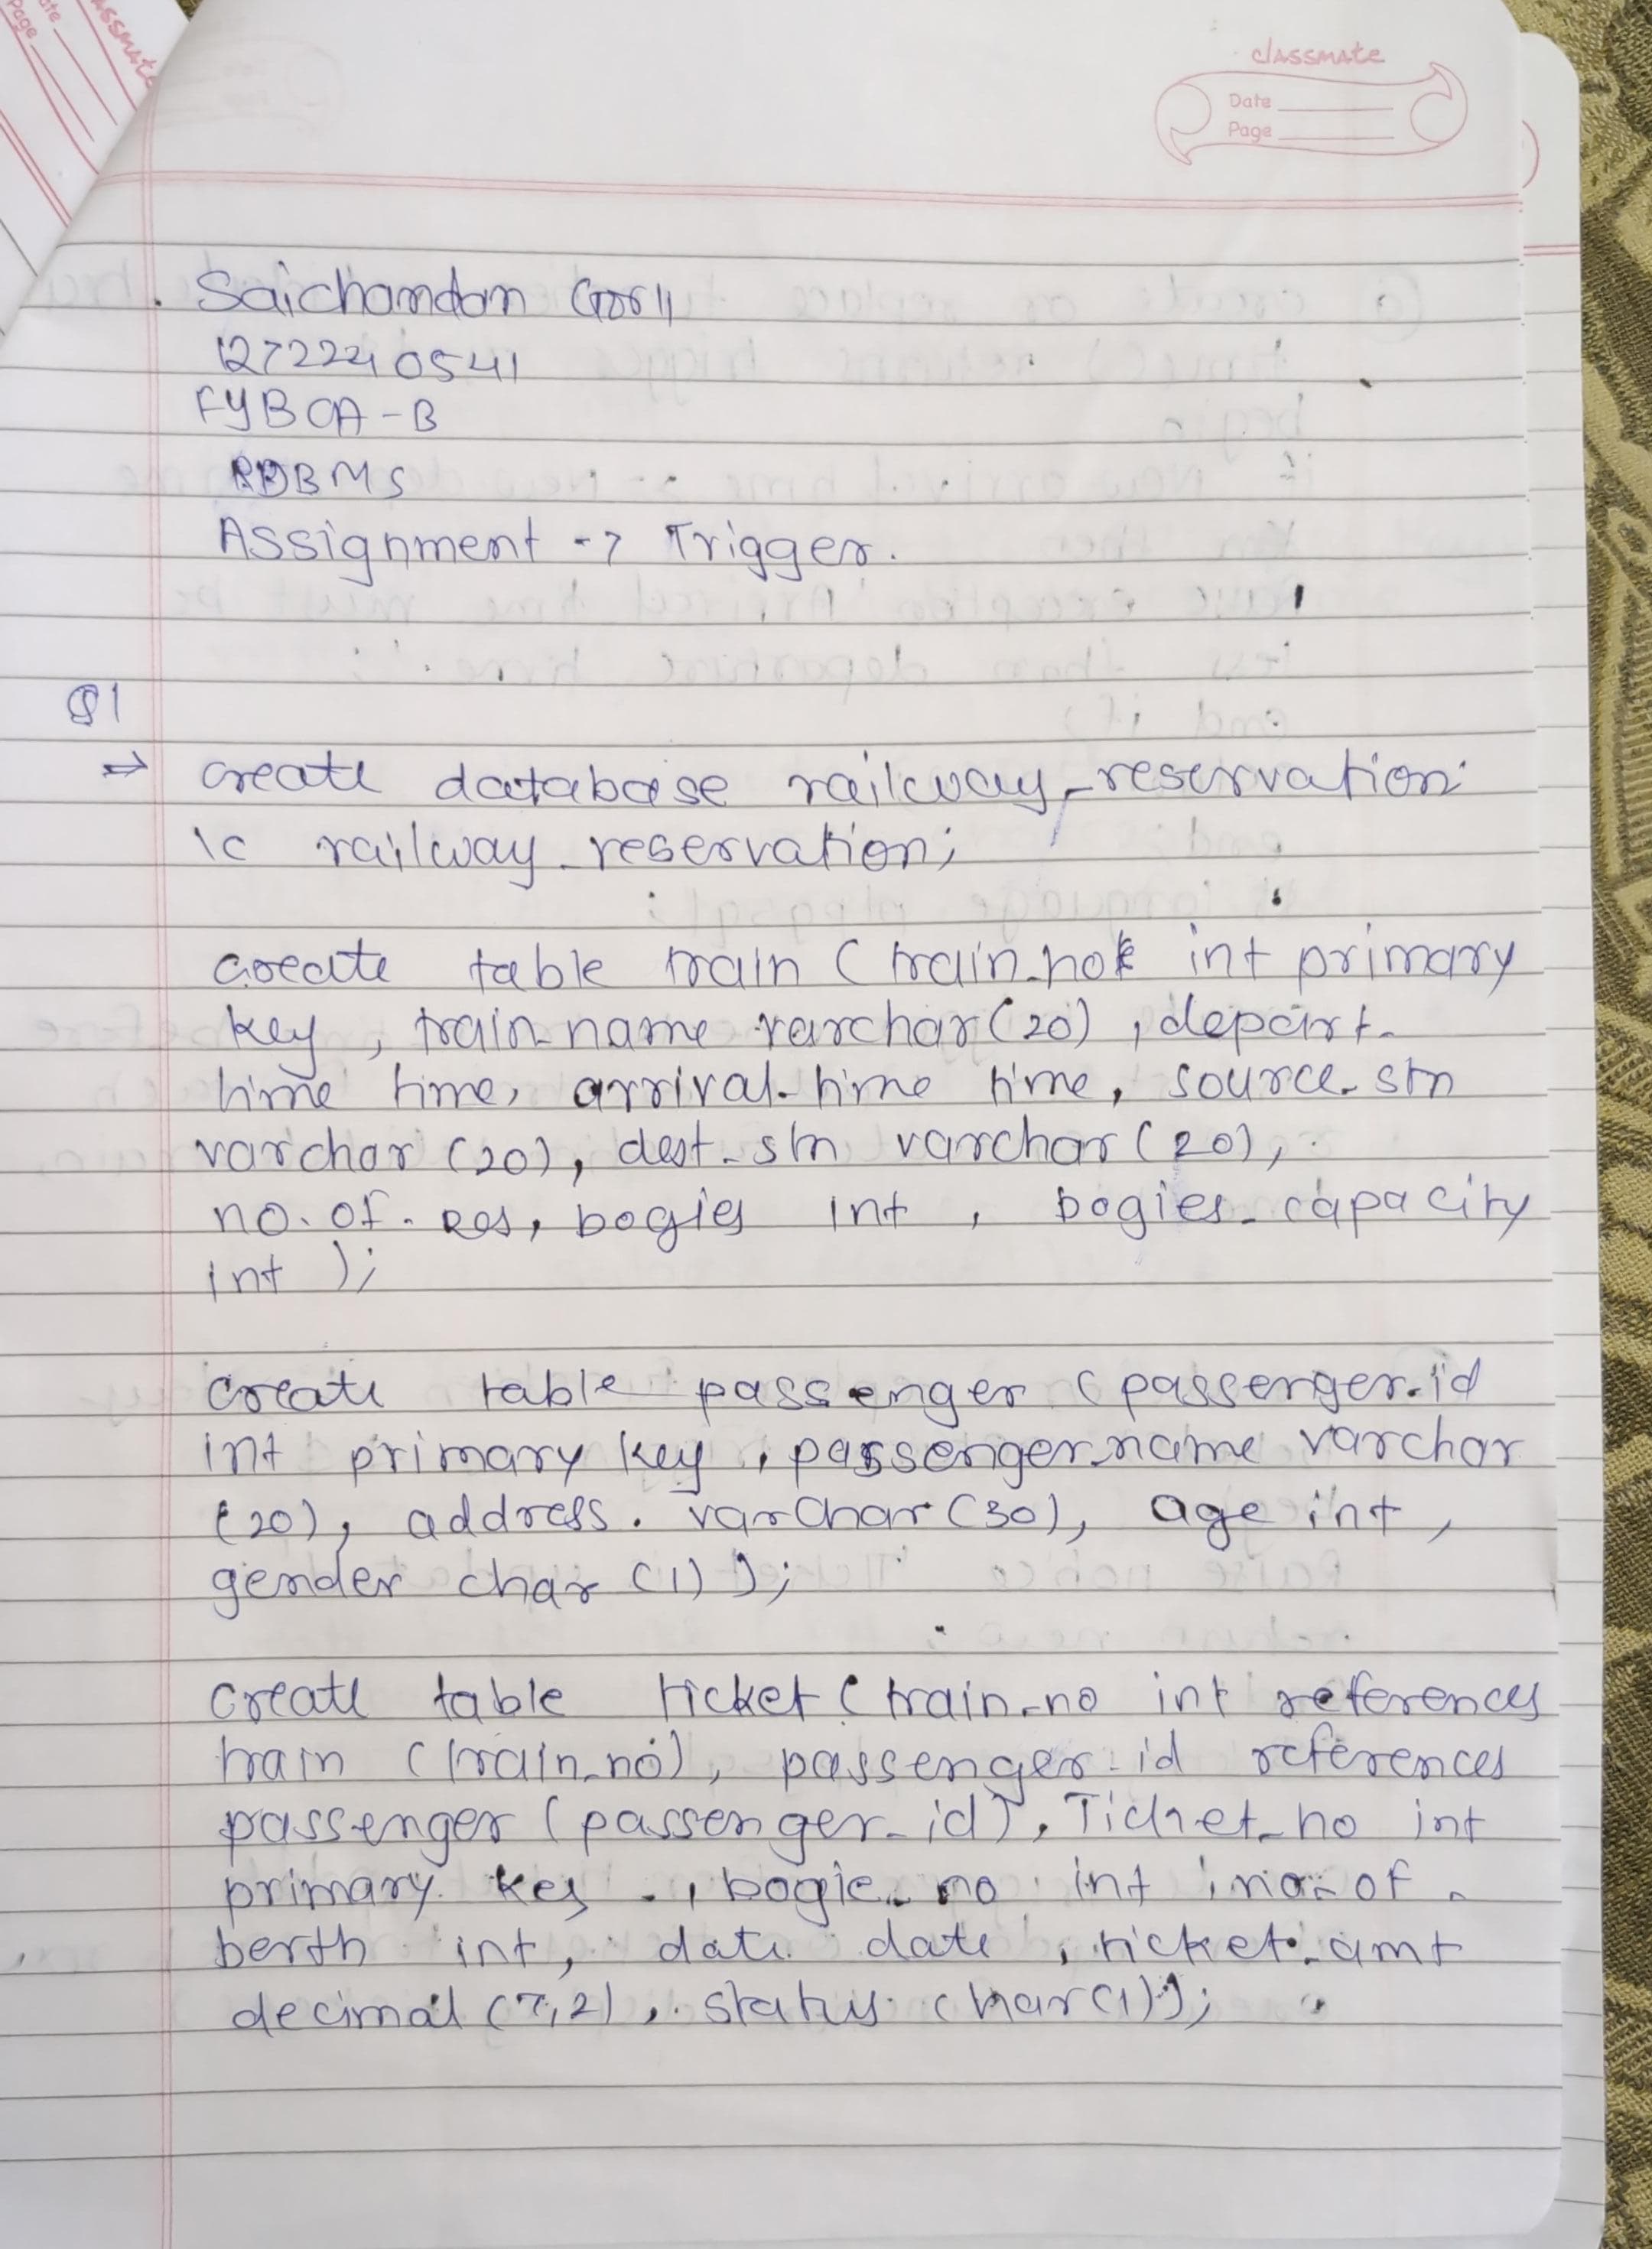 classmate
Date
Page
Saichandan Goli
1272240541
FYBCA-B
RDBMS
Assignment -> Trigger.
Q1
=> create database railway_reservation;
\c railway_reservation;
create table train (train_no int primary
key, train_name varchar(20), depart_
time time, arrival_time time, source_stn
varchar (20), dest_stn varchar (20),
no_of_res_bogies int, bogies_capacity
int );
create table passenger (passenger_id
int primary key, passenger_name varchar
(20), address varchar (30), age int,
gender char (1) );
create table ticket (train_no int references
train (train_no), passenger_id references
passenger (passenger_id), Ticket_no int
primary key , bogie_no int, no_of_
berth int, date date, ticket_amt
decimal (7,2), status char(1));